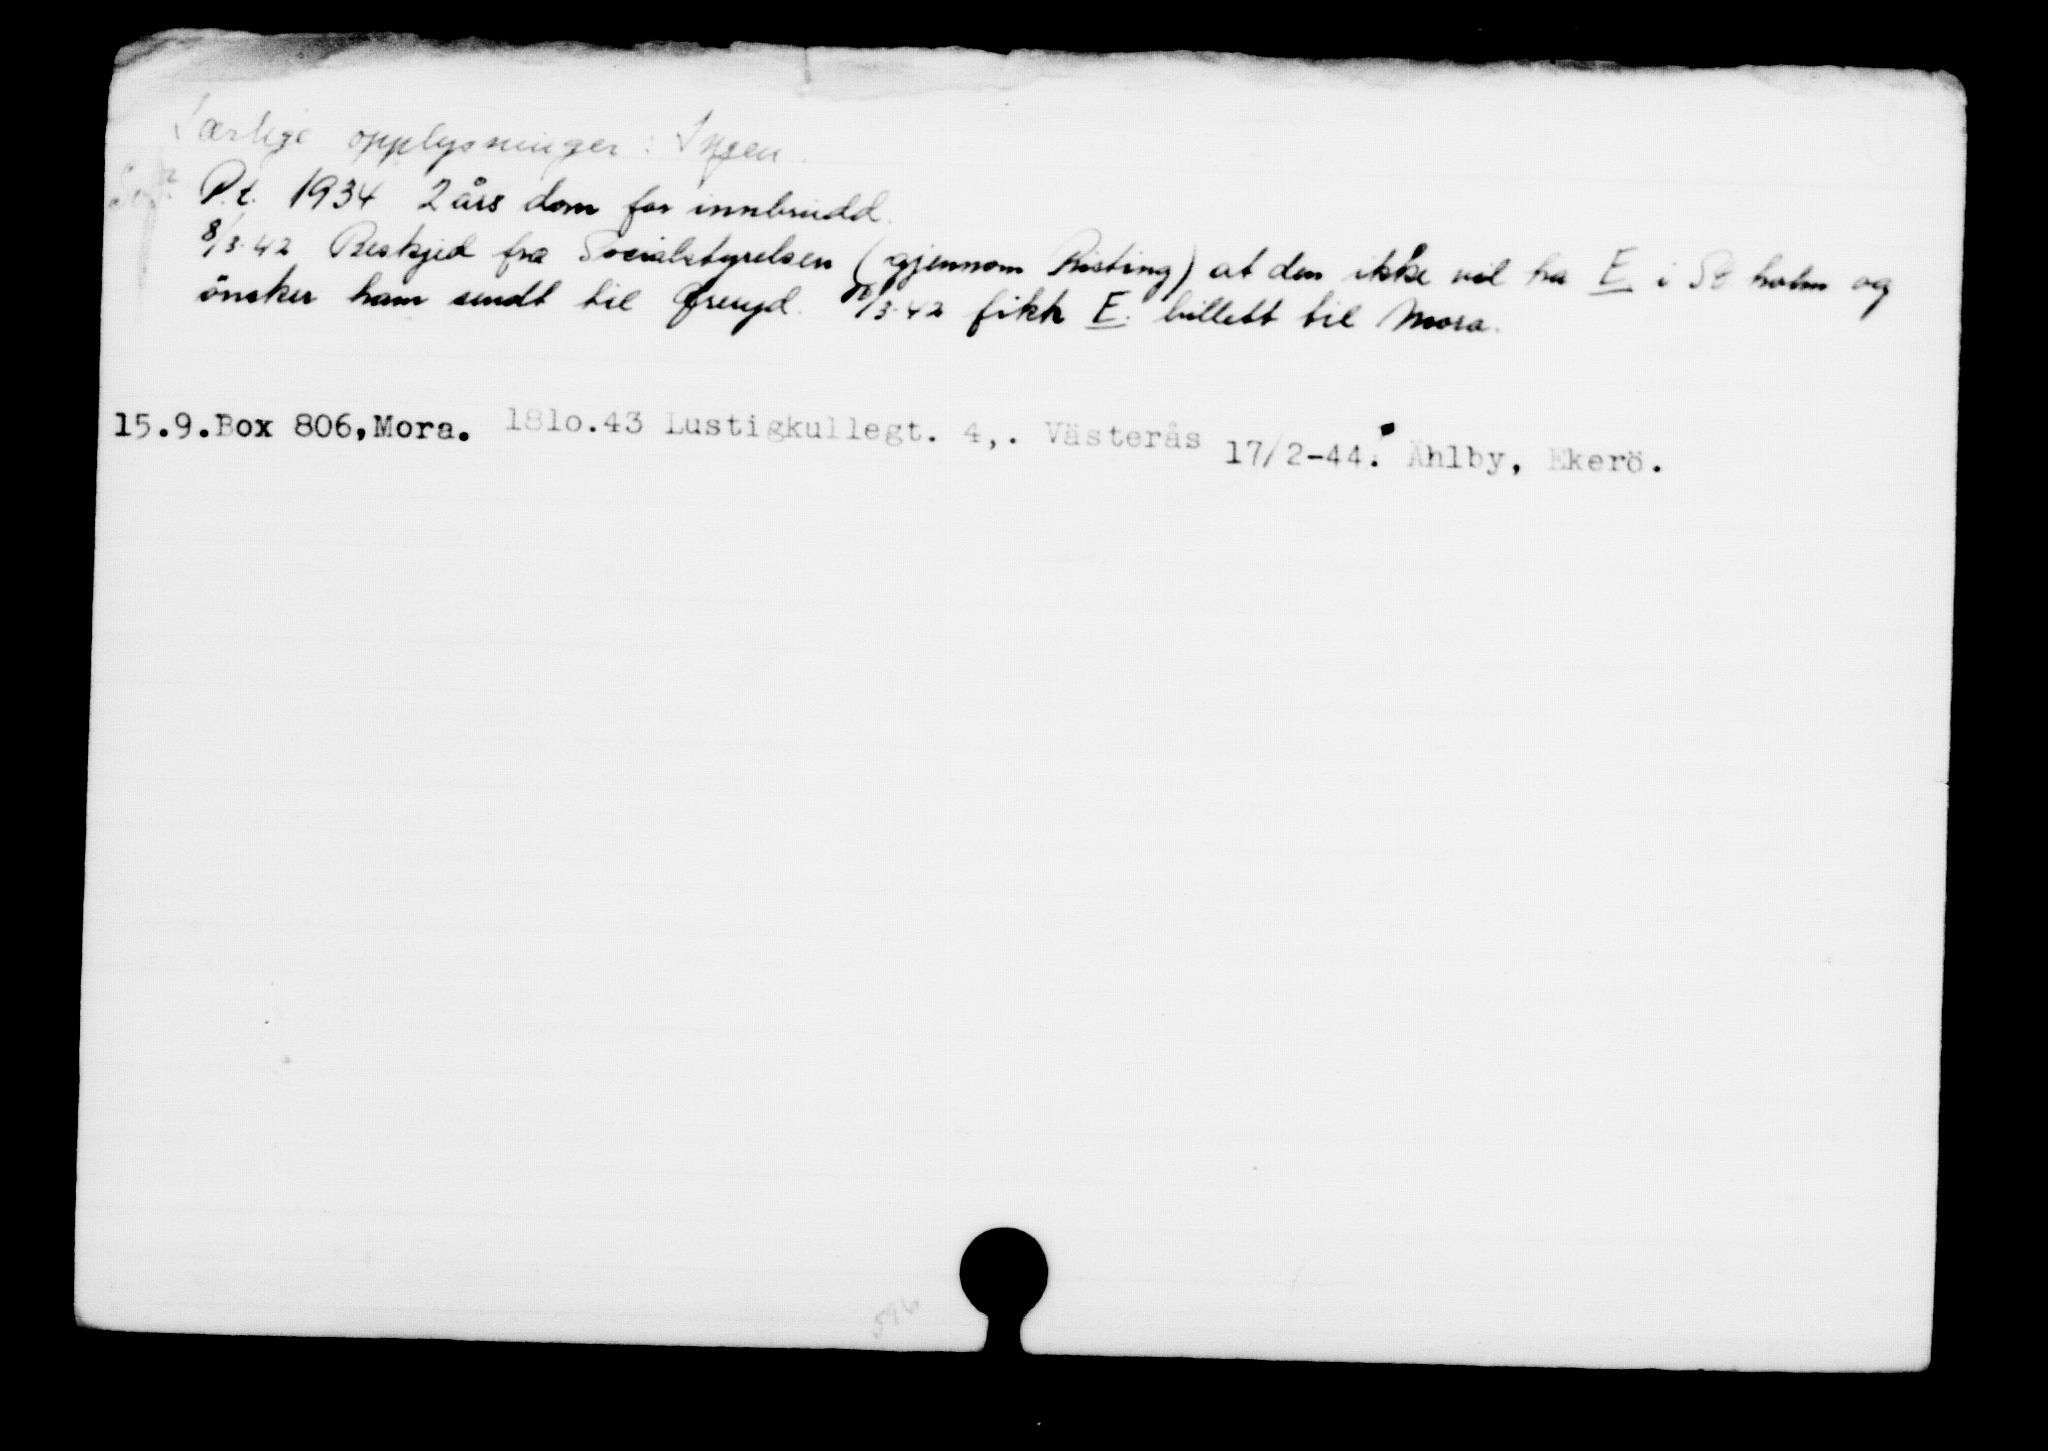 Særlige opplysninger: Ingen.
P.t. 1934 2 års dom for innbrudd.
8/3.42 Beskjed fra Socialstyrelsen (gjennom Risting) at den ikke vil ha E. i St.holm og
önsker ham sendt til Öreryd. /3.42 fikk E. billett til Mora.
15.9.Box 806,Mora. 181o.43 Lustigkullegt. 4,. Västerås 17/2-44. Ählby, Ekerö.